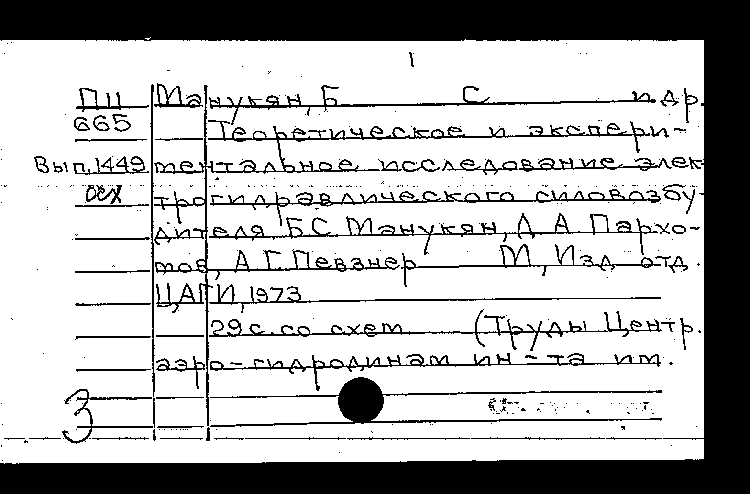 1
П11 Манукян, Б С и др.
665 Теоретическое и экспери-
Вып. 1449 ментальное исследование элек-
осх трогидравлического силовозбу-
дителя. Б С Манукян, Д А Пархо-
мов, А Г Певзнер М, Изд отд.
ЦАГИ, 1973
29 с. со схем (Труды Центр.
аэро-гидродинам ин-та им.
3